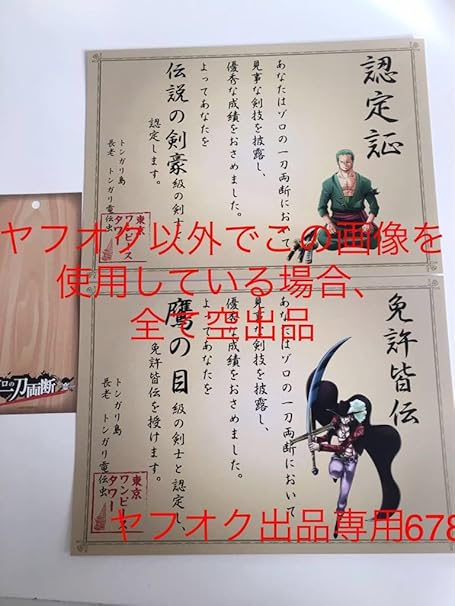 認定証
あなたはゾロの一刀両断において
見事な剣技を披露し、
優秀な成績をおさめました。
よってあなたを
伝説の剣豪級の剣士と
認定します。
トンガリ島
長老 トンガリ電伝虫
東京
ワンピース
タワー
ヤフオク以外でこの画像を
使用している場合、
全て空出品
免許皆伝
あなたはゾロの一刀両断において
見事な剣技を披露し、
優秀な成績をおさめました。
よってあなたを
鷹の目級の剣士と認定し
免許皆伝を授けます。
トンガリ島
長老 トンガリ電伝虫
東京
ワンピース
タワー
ゾロの一刀両断
ヤフオク出品専用678